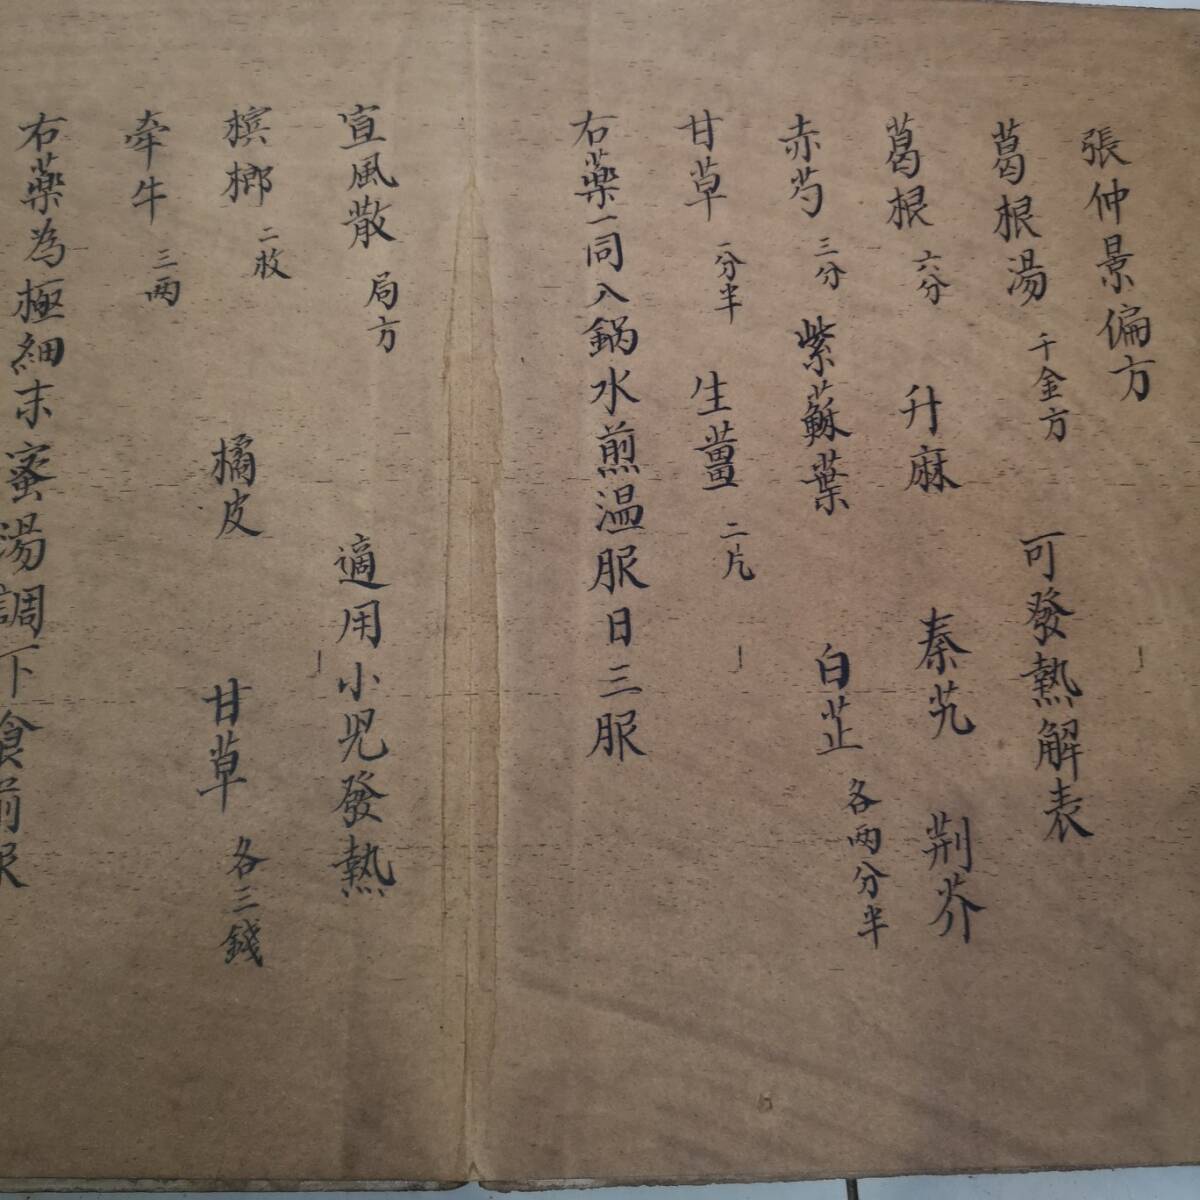 張仲景偏方
葛根湯 千金方 可發熱解表
葛根 六分 升麻 秦艽 荆芥
赤芍 三分 紫蘇葉 白芷 各兩分半
甘草 一分半 生薑 二片
右藥一同入鍋水煎温服日三服
宣風散 局方 適用小児發熱
檳榔 二枚 橘皮 甘草 各三錢
牵牛 三两
右藥為極細末蜜湯調下食前服